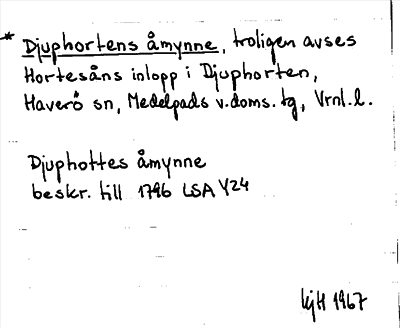 * Djuphortens åmynne, troligen avses
Hortesåns inlopp i Djuphorten,
Haverö sn, Medelpads v. doms. tg, Vrnl. l.
Djuphottes åmynne
beskr. till 1796 LSA Y24
1967